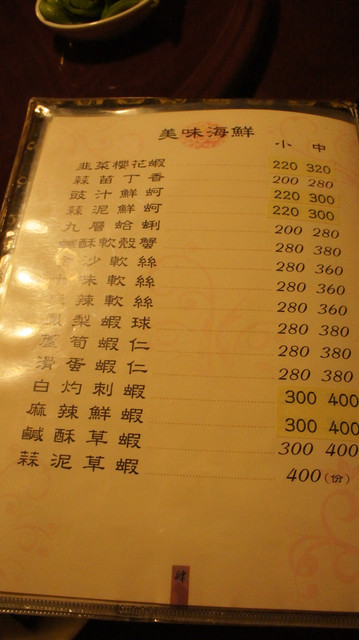 美味海鮮
小 中
韭菜櫻花蝦 220 320
蒜苗丁香 200 280
豉汁鮮蚵 220 300
蒜泥鮮蚵 220 300
九層蛤蜊 200 280
酥軟殼蟹 280 380
沙軟絲 280 360
味軟絲 280 360
辣軟絲 280 360
鳳梨蝦球 280 380
蘆筍蝦仁 280 380
滑蛋蝦仁 280 380
白灼刺蝦 300 400
麻辣鮮蝦 300 400
鹹酥草蝦 300 400
蒜泥草蝦 400(份)
肆